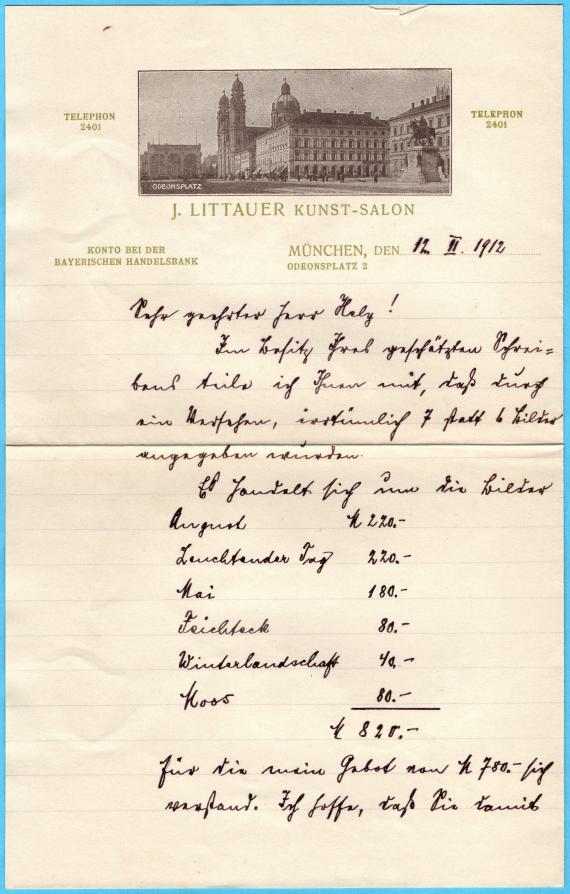 TELEPHON
2401
ODEONSPLATZ
TELEPHON
2401
J. LITTAUER KUNST-SALON
KONTO BEI DER
BAYERISCHEN HANDELSBANK
MÜNCHEN, DEN 12. II. 1912
ODEONSPLATZ 2
Sehr geehrter Herr Helg!
Im Besitz Ihres geschätzten Schrei=
bens teile ich Ihnen mit, daß durch
ein Versehen, irrtümlich 7 statt 6 Bilder
angegeben wurden.
Es handelt sich um die Bilder
August M 220.-
Leuchtender Tag 220.-
Mai 180.-
Teichteck 80.-
Winterlandschaft 40.-
Moos 80.-
M 820.-
für die mein Gebot von M 780.- sich
verstand. Ich hoffe, daß Sie damit